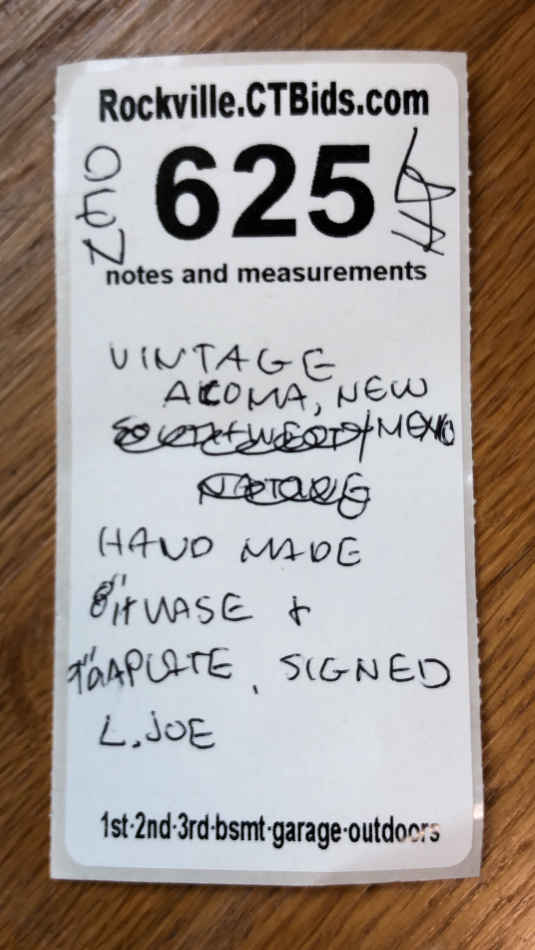 Rockville.CTBids.com
625
notes and measurements
VINTAGE
ACOMA, NEW
MEXICO
HAND MADE
8"H VASE +
PLATE, SIGNED
L. JOE
1st·2nd·3rd·bsmt·garage·outdoors